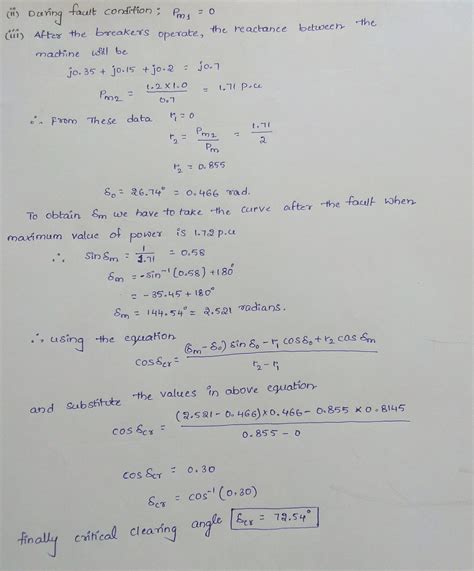 (ii) During fault condition: Pm1 = 0
(iii) After the breakers operate, the reactance between the
machine will be
j0.35 + j0.15 + j0.2 = j0.7
Pm2 = 1.2×1.0 / 0.7 = 1.71 p.u
∴ From these data r1 = 0
r2 = Pm2 / Pm = 1.71 / 2
r2 = 0.855
δ0 = 26.74° = 0.466 rad.
To obtain δm we have to take the curve after the fault when
maximum value of power is 1.72 p.u
∴ sin δm = 1 / 1.71 = 0.58
δm = -sin⁻¹(0.58) + 180°
= -35.45 + 180°
δm = 144.54° = 2.521 radians.
∴ using the equation
cos δcr = (δm - δ0) sin δ0 - r1 cos δ0 + r2 cos δm / r2 - r1
and substitute the values in above equation
cos δcr = (2.521 - 0.466) × 0.466 - 0.855 × 0.8145 / 0.855 - 0
cos δcr = 0.30
δcr = cos⁻¹(0.30)
finally critical clearing angle δcr = 72.54°